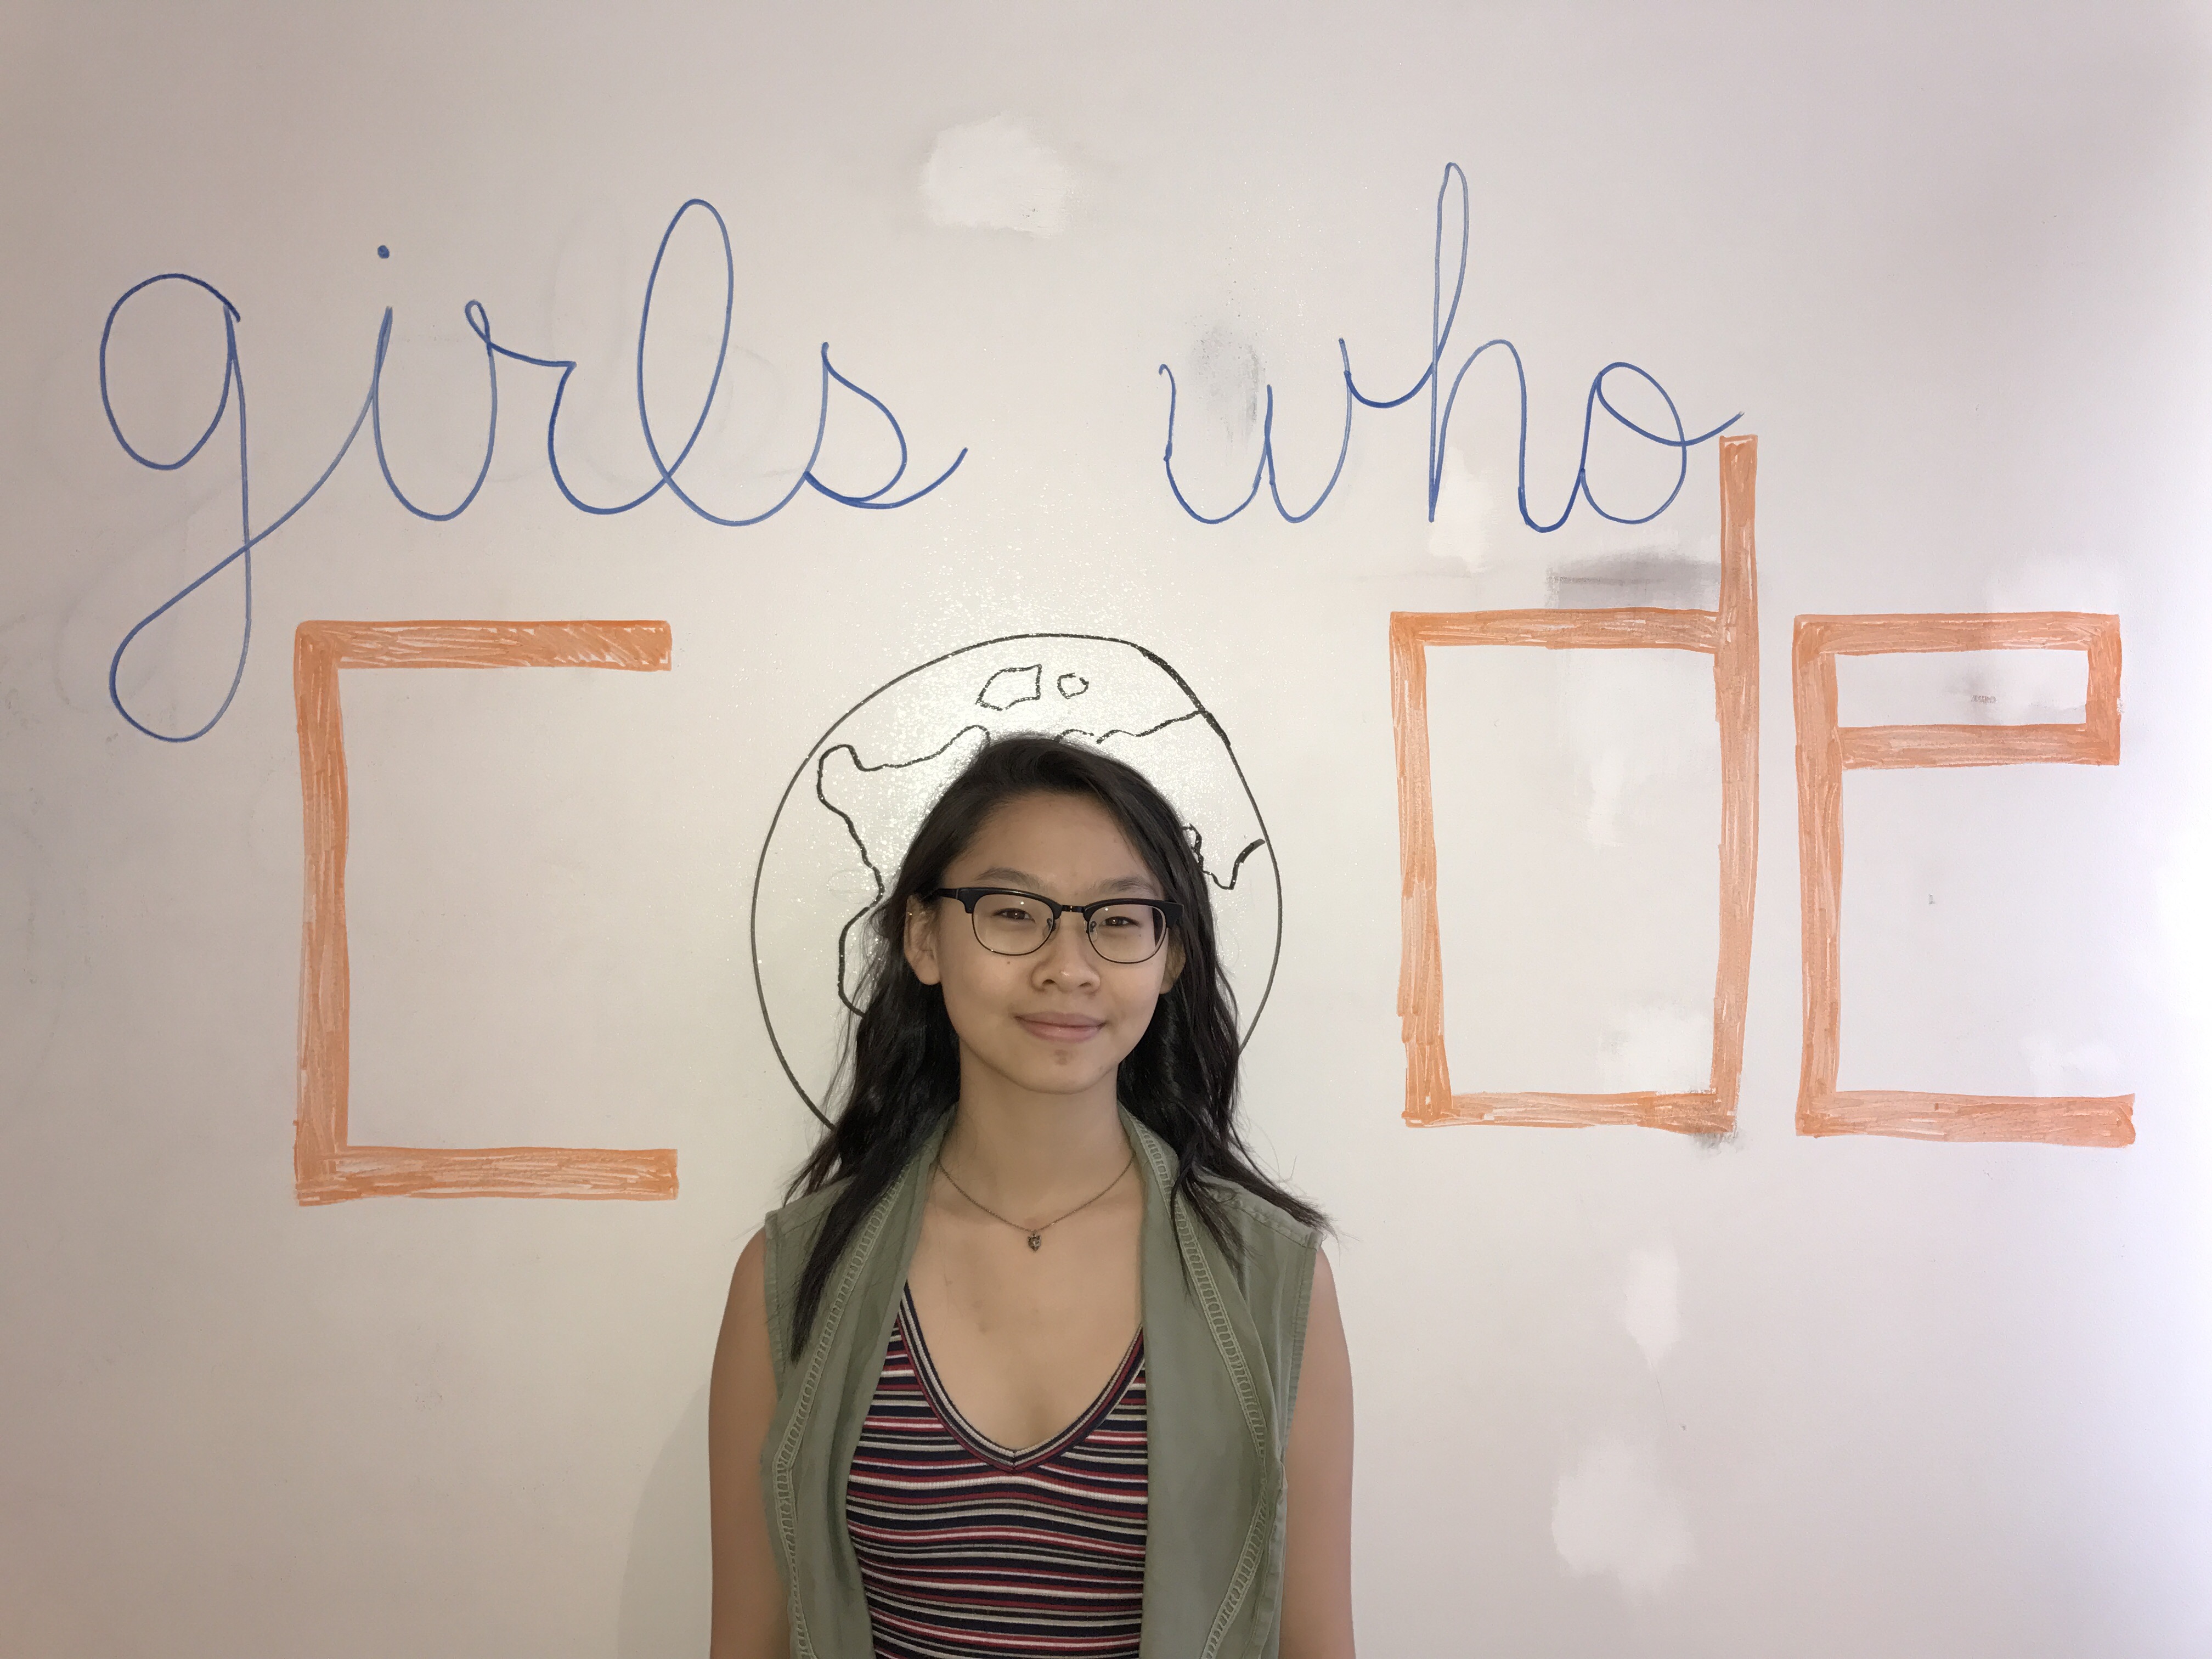 girls who
code